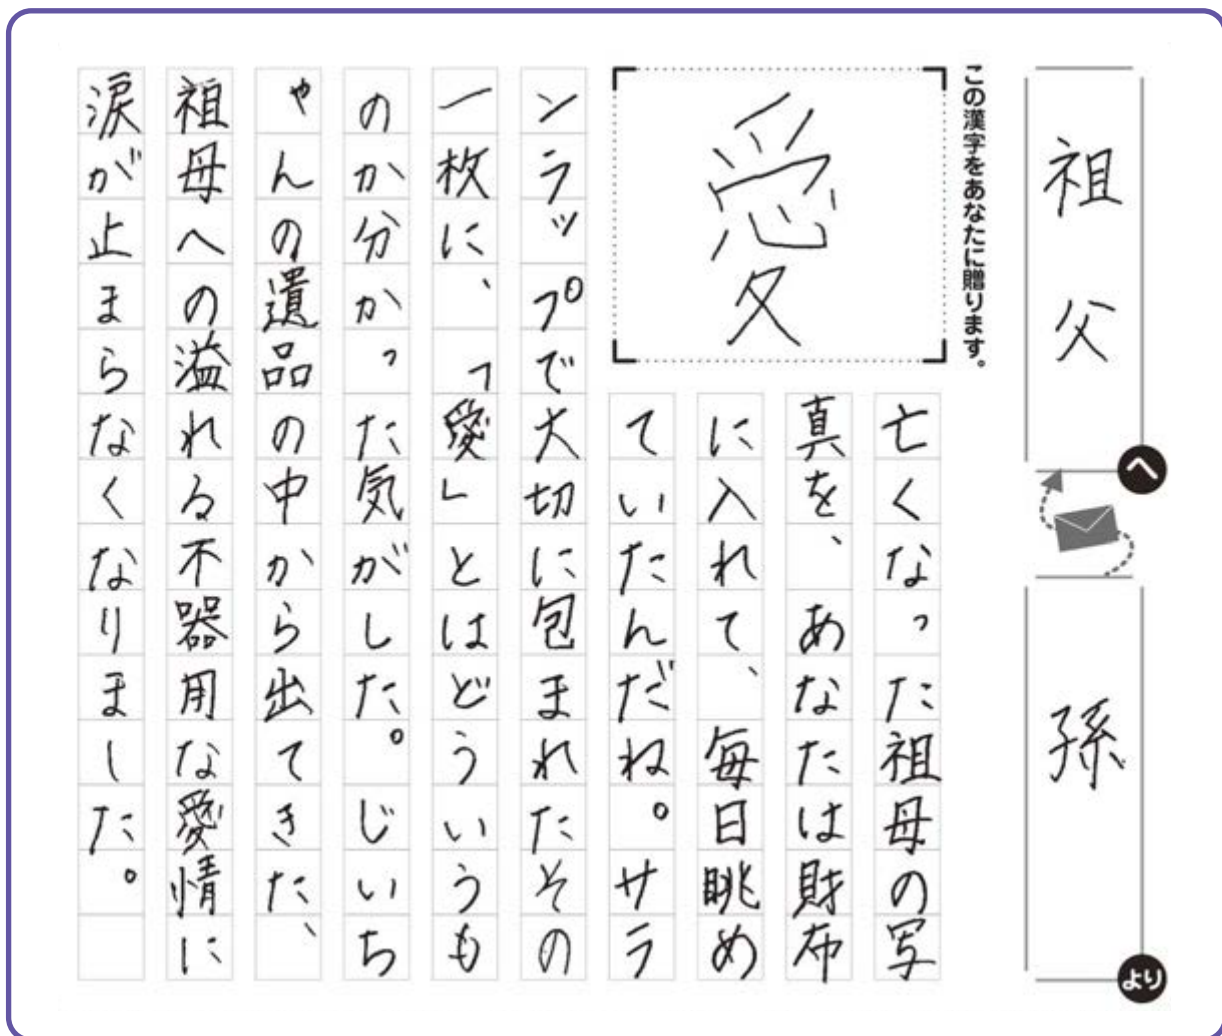 祖父
へ
孫
より
この漢字をあなたに贈ります。
愛
亡くなった祖母の写
真を、あなたは財布
に入れて、毎日眺め
ていたんだね。サラ
ンラップで大切に包まれたその
一枚に、「愛」とはどういうも
のか分かった気がした。じいち
ゃんの遺品の中から出てきた、
祖母への溢れる不器用な愛情に
涙が止まらなくなりました。